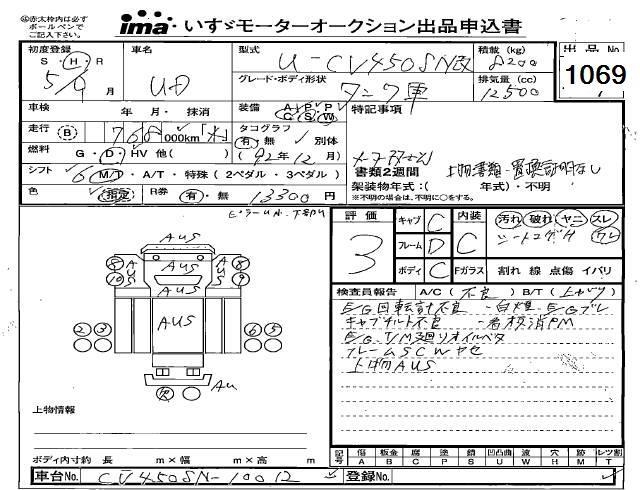 ◎赤太枠内は必ず
ボールペンで
ご記入下さい。
ima いすゞモーターオークション出品申込書
初度登録
S・H・R
5/9月
車名
UD
型式
U-CV450SN改
積載 (kg)
8200
出品No.
1069
グレード・ボディ形状
タンク車
排気量 (cc)
12500
車検 年・月・抹消
装備 A P P C S W
特記事項
走行 B 768,000km
タコグラフ
有・無 別体
('92年12月)
燃料 G・D・HV 他( )
シフト 6 M/T・A/T・特殊(2ペダル・3ペダル)
書類2週間
上物書類・置換証明なし
架装物年式:( 年式)・不明
※不明の場合は、不明に○をする。
色 指定 R券 有・無 13300円
ミラーUA・下部凹
評価
3
キャブ C
フレーム D
ボディ C
内装 C
汚れ 破れ ヤニ スレ
シートコゲ穴 ウレ
Fガラス 割れ 線 点傷 イバリ
検査員報告 A/C(不良) B/T(上がり)
E/G回転計不良・白煙・E/Gブレ
キャブチルト不良・看板消PM
E/G,T/M廻りオイルベタ
フレームSCWヤセ
上物AUS
AUS
8 8
10 9
AUS
AUS
AUS
2 3
6 5
欠
AU
上物情報
ボディ内寸約 長 m×幅 m×高 m
記号 傷 A 板金 B 腐 C 塗 P 錆 S 凹凸曲 U 波 W 穴 H 跡 M レツ割 T
車台No. CV450SN-10012
登録No.